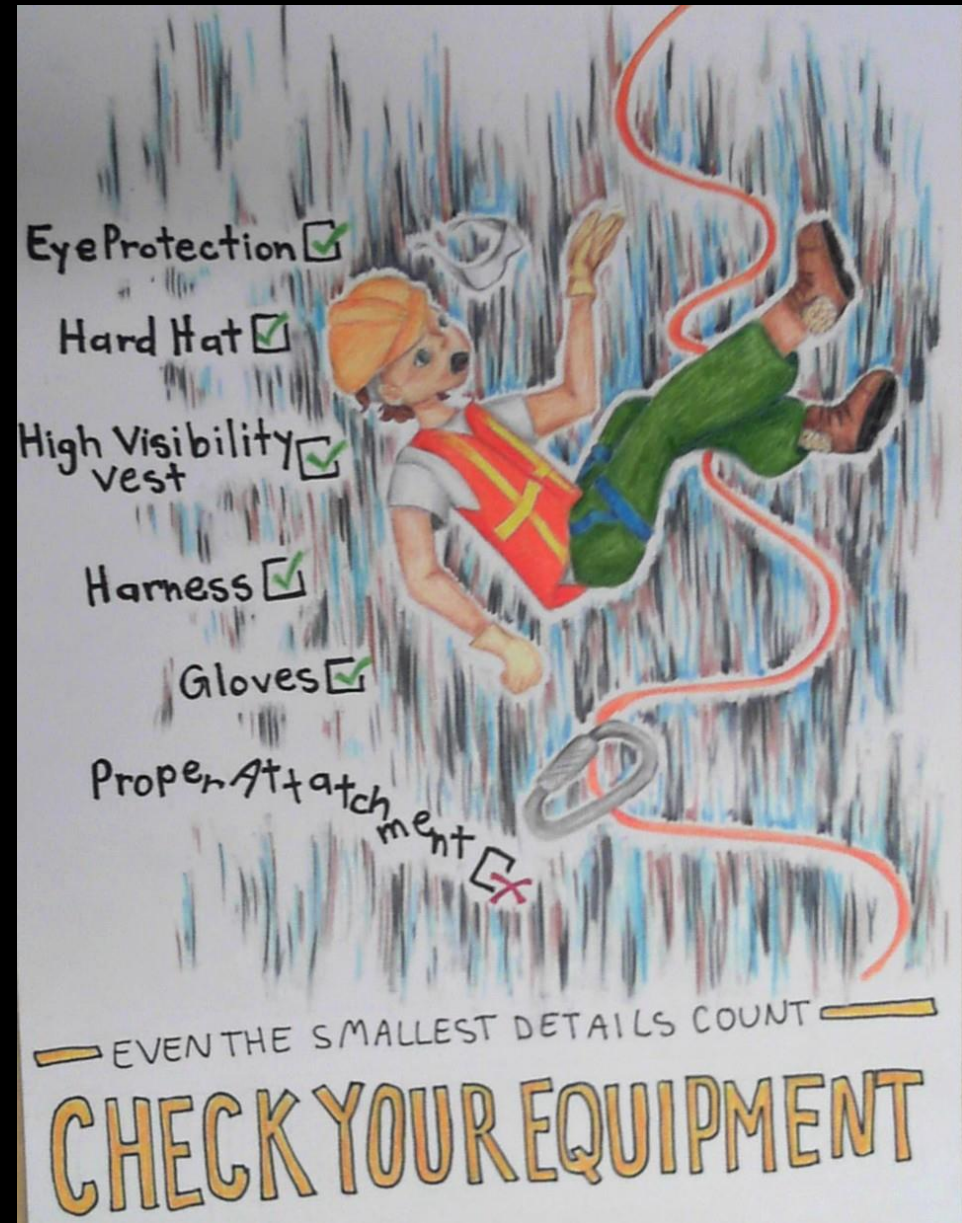 Eye Protection
Hard Hat
High Visibility
vest
Harness
Gloves
Proper Attatch
ment
EVEN THE SMALLEST DETAILS COUNT
CHECK YOUR EQUIPMENT